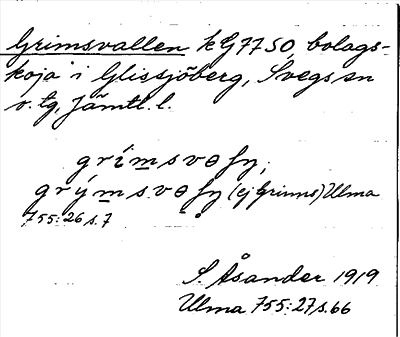 Grimsvallen kG7750, bolags-
koja i Glissjöberg, Svegs sn
o. tg, Jämtl. l.
grímsvɵfy,
grýmsvɵfy (ej Grinns) Ulma
755:26 s. 7
S. Åsander 1919
Ulma 755:27 s. 66